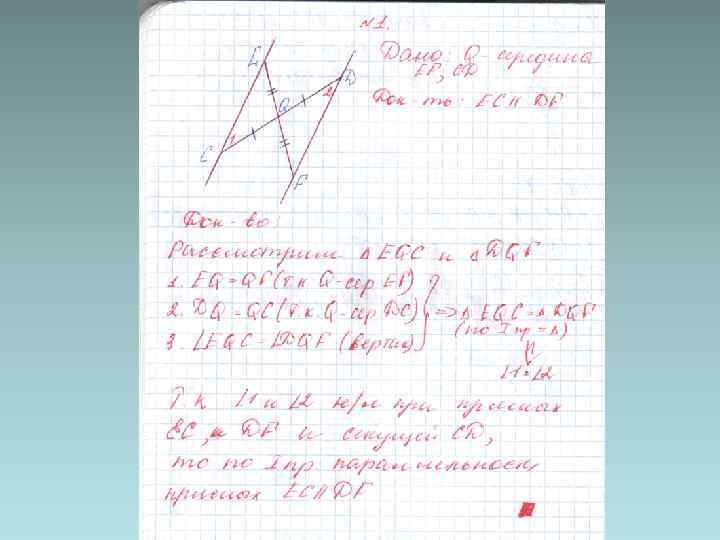 №1.
Дано: Q - середина
EF, CD
Док-ть: EC || DF
E
D
2
Q
1
C
F
Док-во:
Рассмотрим △EQC и △DQF
1. EQ = QF (т.к. Q - сер EF)
2. DQ = QC (т.к. Q - сер DC) => △EQC = △DQF
(по I пр = △)
3. ∠EQC = ∠DQF (вертик)
∠1 = ∠2
Т.к ∠1 и ∠2 н/л при прямых
EC, и DF и секущей CD,
то по I пр параллельности
прямых EC || DF